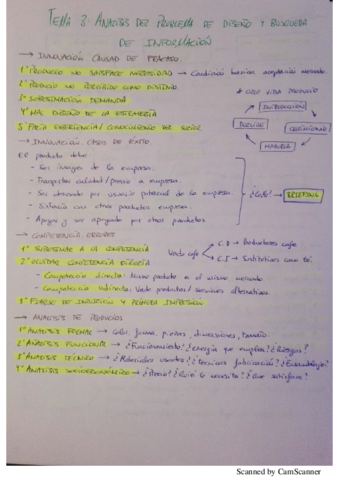 TEMA 3: ANÁLISIS DEL PROBLEMA DE DISEÑO Y BÚSQUEDA
DE INFORMACIÓN
→ INNOVACIÓN CAUSAS DE FRACASO
1º PRODUCTO NO SATISFACE NECESIDAD → Condición básica aceptación mercado.
2º PRODUCTO NO PERCIBIDO COMO DISTINTO.
3º SOBREESTIMACIÓN DEMANDA
4º MAL DISEÑO DE LA ESTRATEGIA
5º FALTA EXPERIENCIA / CONOCIMIENTO DEL SECTOR
* CICLO VIDA PRODUCTO
INTRODUCCIÓN
CRECIMIENTO
MADUREZ
DECLIVE
→ INNOVACIÓN. CLAVES DE ÉXITO
El producto debe:
- Ser imagen de la empresa.
- Transmitir calidad / precio a empresa.
- Ser atractivo por usuario potencial de la empresa.
- Sintonía con otros productos empresa.
- Apoyar y ser apoyado por otros productos
¿Cómo? → BRIEFING
→ COMPETENCIA ERRORES
1º SUBESTIMAR A LA COMPETENCIA
2º OLVIDAR COMPETENCIA INDIRECTA
- Competencia directa: Mismo producto a el mismo mercado.
- Competencia indirecta: Vende productos / servicios alternativos.
Vendo café
C.D → Productores café
C.I → Sustitutivos como té.
→ ANÁLISIS DE PRODUCTOS
1º ANÁLISIS FORMAL → Color, forma, piezas, dimensiones, tamaño.
2º ANÁLISIS FUNCIONAL → ¿Funcionamiento? ¿energía que emplea? ¿Riesgos?
3º ANÁLISIS TÉCNICO → ¿Materiales usados? ¿técnicas fabricación? ¿Ensamblajes?
4º ANÁLISIS SOCIOECONÓMICO → ¿Precio? ¿Quién lo necesita? ¿Qué satisface?
Scanned by CamScanner